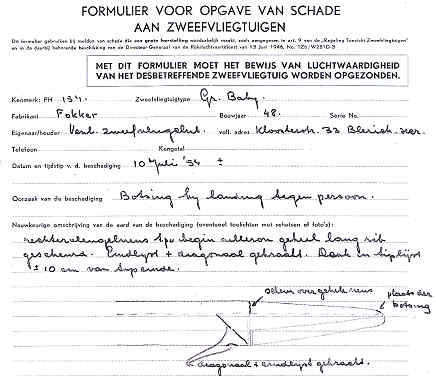 FORMULIER VOOR OPGAVE VAN SCHADE
AAN ZWEEFVLIEGTUIGEN
De formulier gebruiken bij melden van schade die een grote herstelling noodzakelijk maakt, zoals aangegeven in art. 9 van de „Regeling Toezicht Zweefvliegtuigen"
en in de daarbij behorende beschikking van de Directeur-Generaal van de Rijksluchtvaartdienst van 13 Juni 1946, No. 125/W2810-3
MET DIT FORMULIER MOET HET BEWIJS VAN LUCHTWAARDIGHEID
VAN HET DESBETREFFENDE ZWEEFVLIEGTUIG WORDEN OPGEZONDEN.
Kenmerk: PH 134. Zweefvliegtuigtype Gr. Baby.
Fabrikant Fokker Bouwjaar 48. Serie No.
Eigenaar/houder voll. adres Kloosterstr. 33
Telefoon Kengetal
Datum en tijdstip v. d. beschadiging 10 Juli '54 ±
Oorzaak van de beschadiging Botsing bij landing tegen persoon.
Nauwkeurige omschrijving van de aard van de beschadiging (eventueel toelichten met schetsen of foto's):
rechtervleugelneus t.p.v. begin aileron geheel lang rib
gescheurd. Eindlijst + diagonaal gekraakt. Deuk in tiplijst
± 10 cm van tipeinde.
scheur over gehele neus
plaats der
botsing
diagonaal + eindlijst gekraakt.